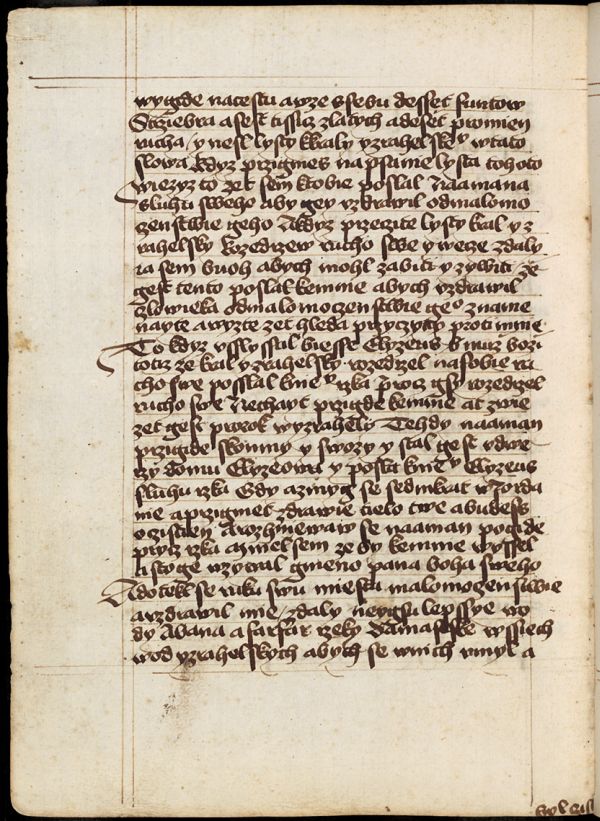 wygide nacestu awze ssebu desset funtow
Strziebra asest tissicz zlatych adeset promien
rucha / y nesl lysty kkraly yzrahelskey wtato
slowa kdyz przigmes napsanie lysta tohoto
wiezyz to zet sem ktobie poslal Naamana
Sluhu sweho aby gey vzdrawil odmalomo
czenstwie geho Akdyz przeczite lysty kral yz
rahelsky Rozedrzew rucho swe y wecze zdaly
ia sem buoh abych mohl zabiti y zywiti ze
gest tento poslal kemnie abych vzdrawil
czlowieka odmalomoczenstwie geo zname
nayte awyzte zet hleda przyczyny proti mnie
To kdyz vslyssal biesse Elyzeus muz bozi
totiz ze kral yzrahelsky rozedrzel nasobie ru
cho swe posslal knemu rzka procz gsy rozedrzel
rucho swe Nechayt przigde kemnie at zwie
zet gest prorok wyzrahely Tehdy naaman
przigide skonmy y swozy y stal gest vdwe
rzy domu Elyzeowa y posla knemu Elyzeus
sluhu rzka Gdy azmyg se sedmkrat w Jorda
nie aprzigmet zdrawie tielo twe abudess
oczistien Arozhniewaw se naaman pogide
prycz rzka azmiel sem ze by kemnie wyssel
astoge wzywal gmeno pana boha sweho
Adotekl se ruku swu miesta malomoczenstwie
auzdrawil mie / zdaly neygsu lepssye wo
dy Abana afarfar rzeky Damasske wssiech
wod yzrahelskych abych se wnich vmyl a